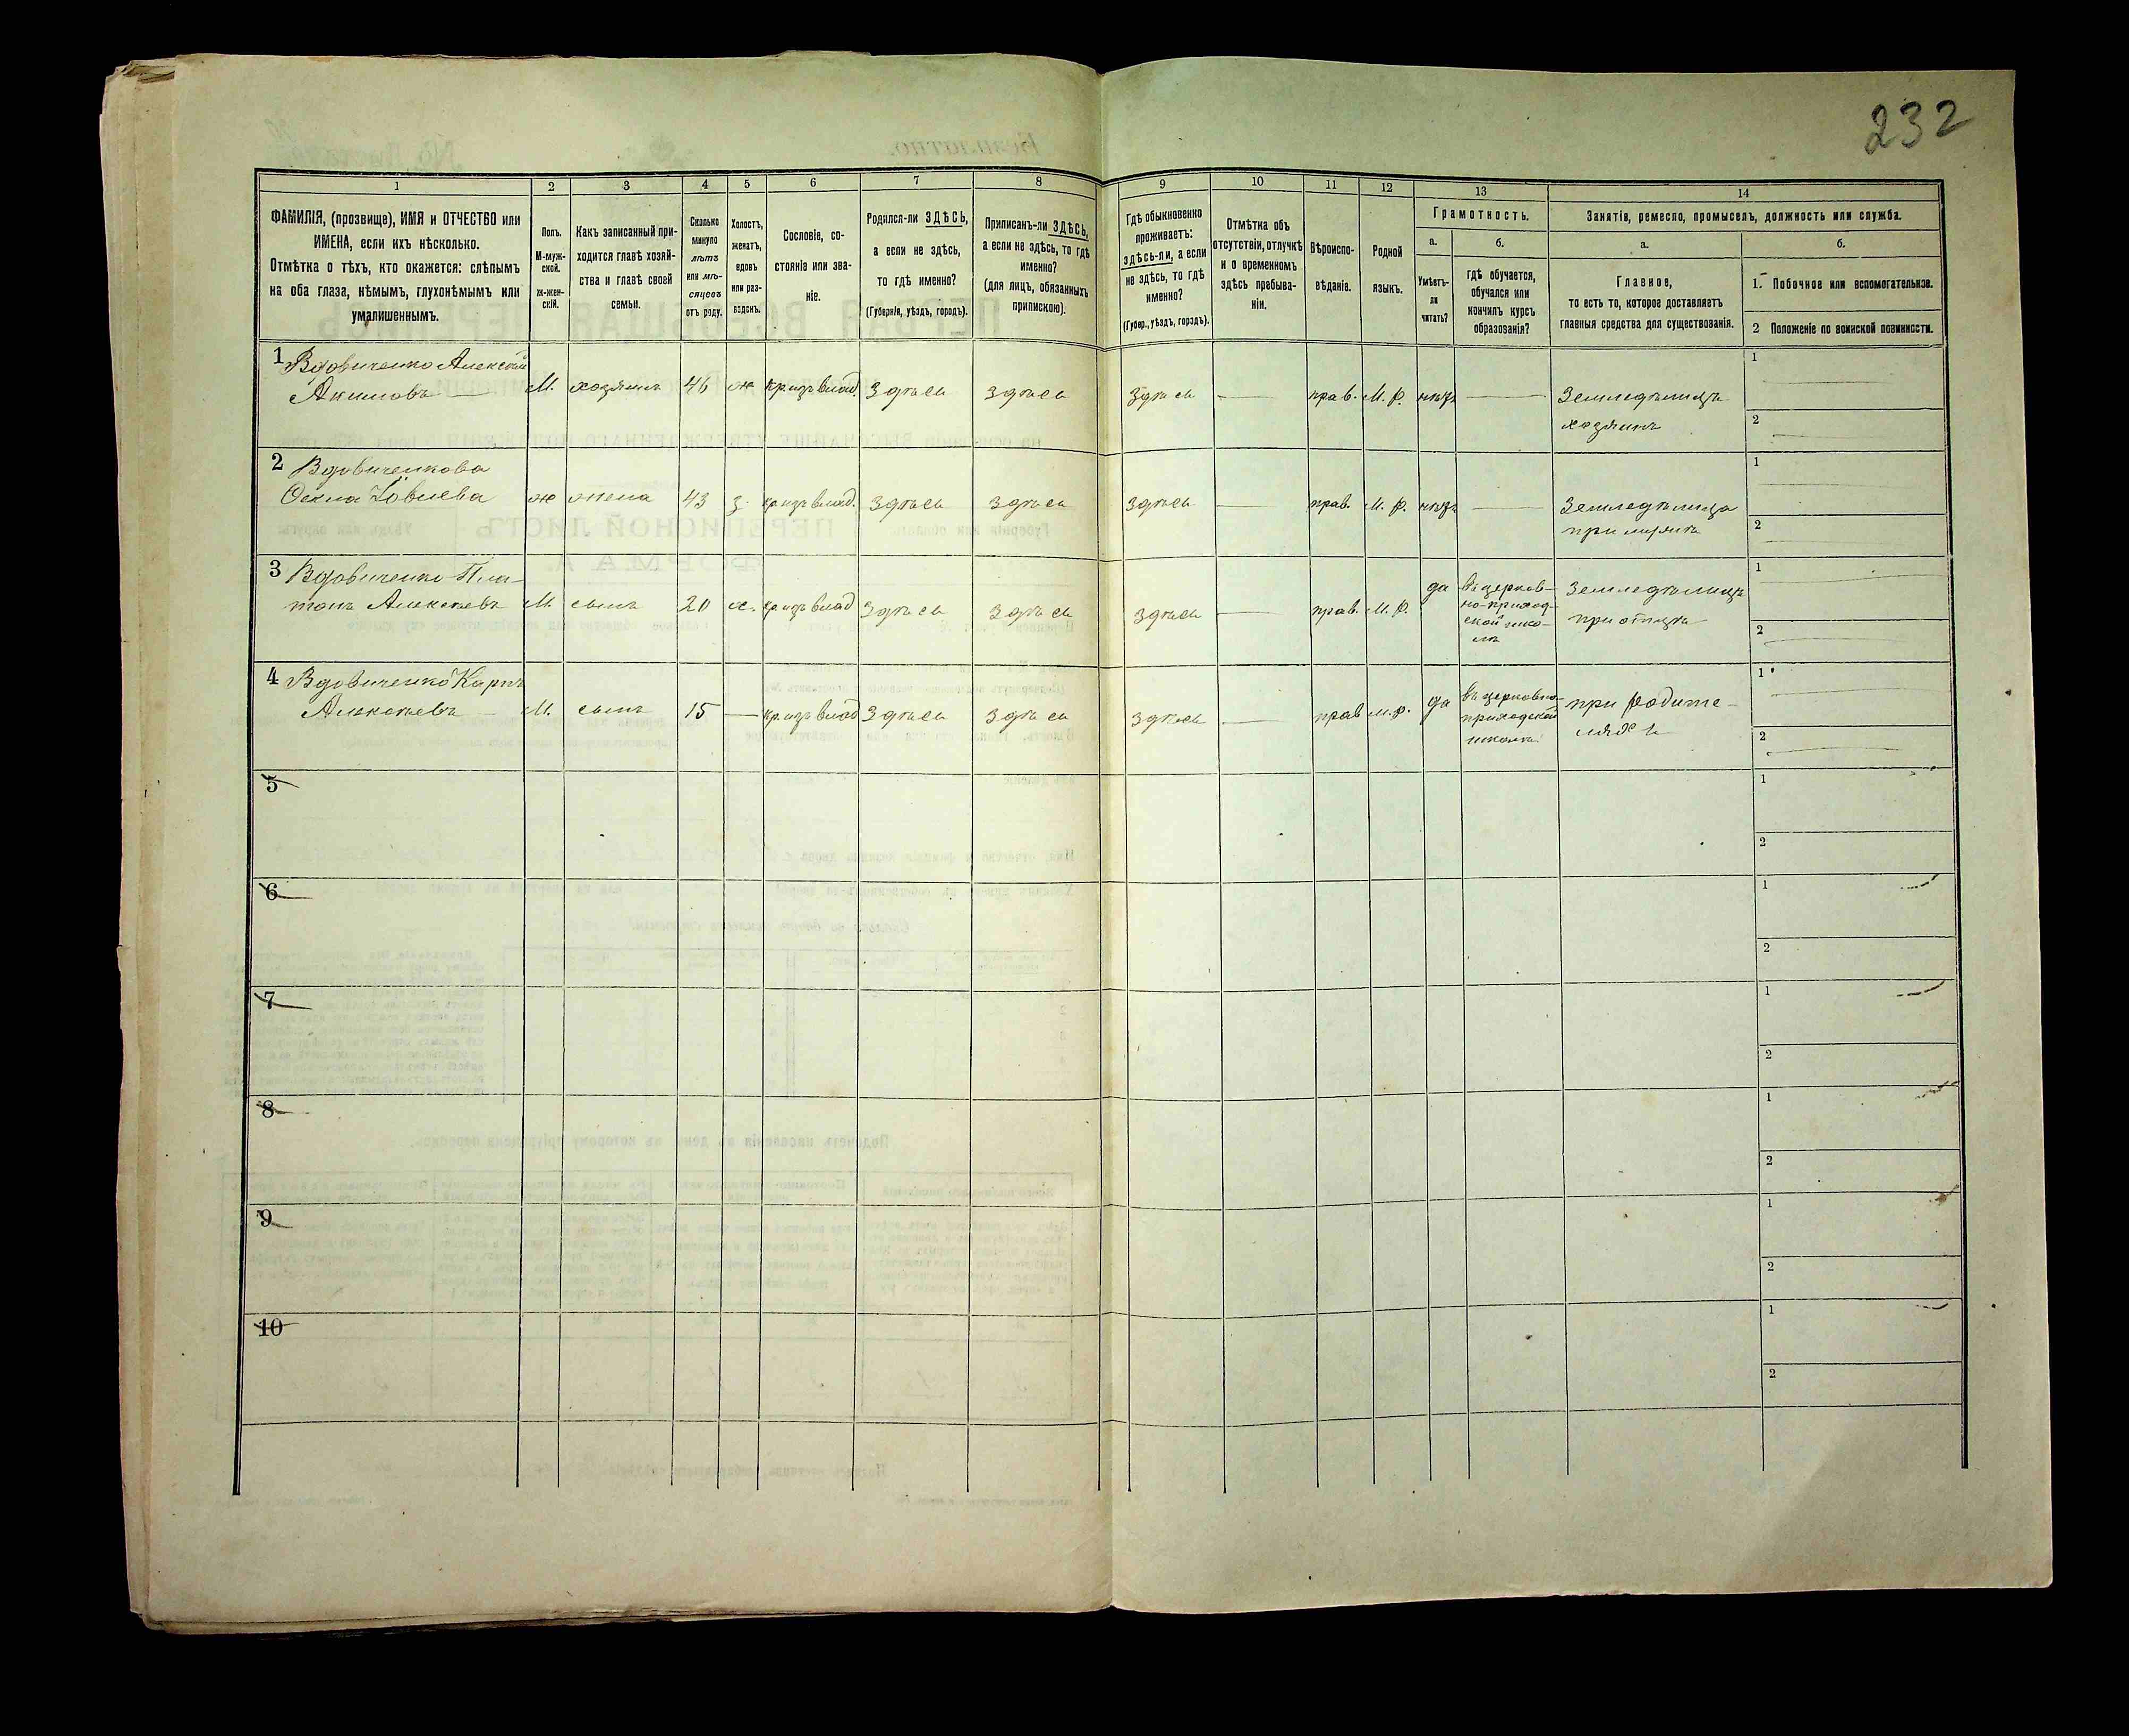 232
1 2 3 4 5 6 7 8 9 10 11 12 13 14
ФАМИЛІЯ, (прозвище), ИМЯ и ОТЧЕСТВО или
ИМЕНА, если ихъ нѣсколько.
Отмѣтка о тѣхъ, кто окажется: слѣпымъ
на оба глаза, нѣмымъ, глухонѣмымъ или
умалишеннымъ.
Полъ.
М-муж-
ской.
ж-жен-
скій.
Какъ записанный при-
ходится главѣ хозяй-
ства и главѣ своей
семьи.
Сколько
минуло
лѣтъ
или мѣ-
сяцевъ
отъ роду.
Холостъ,
женатъ,
вдовъ
или раз-
веденъ.
Сословіе, со-
стояніе или зва-
ніе.
Родился-ли ЗДѢСЬ,
а если не здѣсь,
то гдѣ именно?
(Губернія, уѣздъ, городъ).
Приписанъ-ли ЗДѢСЬ,
а если не здѣсь, то гдѣ
именно?
(для лицъ, обязанныхъ
припискою).
Гдѣ обыкновенно
проживаетъ:
здѣсь-ли, а если
не здѣсь, то гдѣ
именно?
(Губер., уѣздъ, городъ).
Отмѣтка объ
отсутствіи, отлучкѣ
и о временномъ
здѣсь пребыва-
ніи.
Вѣроиспо-
вѣданіе.
Родной
языкъ.
Грамотность.
а.
Умѣетъ-
ли
читать?
б.
гдѣ обучается,
обучался или
кончилъ курсъ
образованія?
Занятія, ремесло, промыселъ, должность или служба.
а.
Главное,
то есть то, которое доставляетъ
главныя средства для существованія.
б.
1. Побочное или вспомогательное.
2 Положеніе по воинской повинности.
1 Вдовиченко Алексѣй
Акимовъ — М. хозяинъ 46 ж кр изъ влад. Здѣсь здѣсь здѣсь — прав. М. р. нѣтъ — Земледѣлецъ
хозяинъ
1
2
2 Вдовиченкова
Ѳекла Іовлева ж жена 43 з. кр изъ влад. здѣсь здѣсь здѣсь — прав. М. р. нѣтъ — Земледѣлица
при мужѣ
1
2
3 Вдовиченко Пла-
тонъ Алексѣевъ М. сынъ 20 х. кр изъ влад здѣсь здѣсь здѣсь — прав. М. р. да въ церков-
но-приход-
ской шко-
лѣ
Земледѣлецъ
при отцѣ
1
2
4 Вдовиченко Карпъ
Алексѣевъ — М. сынъ 15 — кр изъ влад здѣсь здѣсь здѣсь — прав М. р. да въ церковно-
приходской
школѣ
при родите-
ляхъ
1
2
5
1
2
6
1
2
7
1
2
8
1
2
9
1
2
10
1
2